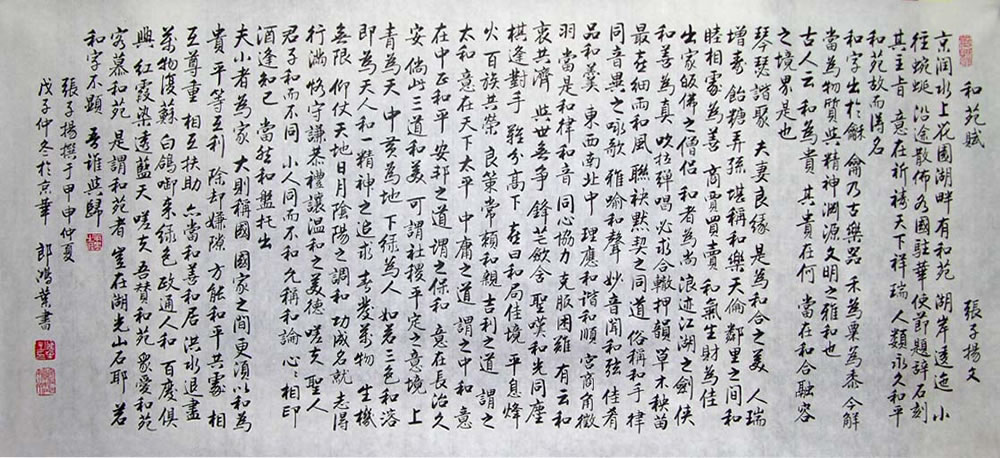 和苑赋 張子揚文
京润水上花園湖畔有和苑 湖岸逶迤 小
徑蜿蜒 沿途散佈各國駐華使節題辭石刻
其主旨 意在祈禱天下祥瑞 人類永久和平
和苑故而得名
和字出於龢 龠乃古樂品 禾為粟為黍今解
當為物質與精神渊源文明之雅和也
古人云和為貴 其貴在何 當在和合融容
之境界是也
琴瑟諧聚 夫妻良緣 是為和合之美 人瑞
增壽 飴糖弄孫 堪稱和樂天倫 鄰里之间和
睦相處為善 商賈買賣和氣生財為佳
出家皈佛之僧侣 和者為尚 浪迹江湖之劍侠
和善為真 吹拉弹唱必求合轍押韻 草木秧苗
最在细雨和風 聯袂默契之同道俗稱和手 律
同音異之咏歌 雅喻和聲 妙音闻和弦 佳肴
品和羹 東西南北中 理應和谐和順 宫商角徵
羽 當是和律和音 同心協力克服困難 有云和
衷共濟 與世無争 鋒芒斂舍 聖嘆和光同塵
棋逢對手 難分高下 在曰和局佳境 平息烽
火 百族共榮 良策常頼和親 吉利之道 謂之
太和 意在天下太平 中庸之道 謂之中和 意
在中正和平 安邦之道 謂之保和 意在長治久
安 倘此三道和美 可謂社稷平定之意境 上
青為天 中荄為地 下绿為人 如若三色和溶
即為天人和一精神之追求 春發萬物 生機
無限 仰仗天地日月陰陽之調和 功成名就 志得
行满 恪守謙恭禮讓温和之美德 嗟夫 聖人
君子和而不同 小人同而不和 允稱和論 心心相印
酒逢知己 當然和盤托出
夫小者為家 大則稱國 國家之间更須以和為
貴 平等互利 除却嫌隙 方能和平共處 相
互尊重 相互扶助 亦當和善和居 洪水退盡
萬物復蘇 白鴿啣来绿色 政通人和 百廢俱
興 红霞染透藍天 嗟夫 吾贊和苑 衆爱和苑
客慕和苑 是謂和苑者 豈在湖光山石耶 若
和字不顯 吾誰與歸
張子揚撰于甲申仲夏
戊子仲冬於京華 郎鴻葉書